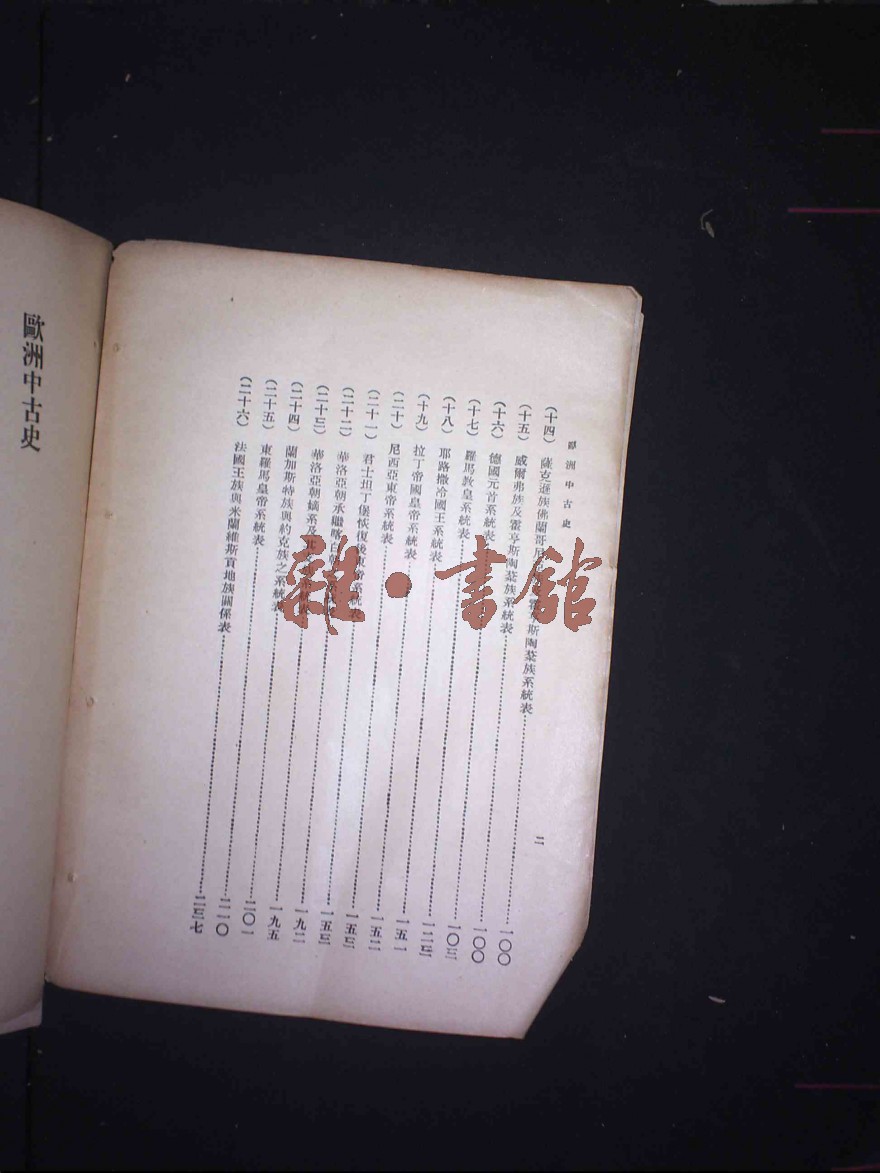 歐洲中古史
二
(十四) 薩克遜族佛蘭哥尼斯陶棻族系統表……一〇〇
(十五) 威爾弗族及霍亨斯陶棻族系統表……一〇〇
(十六) 德國元首系統表……一〇三
(十七) 羅馬教皇系統表……一二三
(十八) 耶路撒冷國王系統表……一五一
(十九) 拉丁帝國皇帝系統表……一五二
(二十) 尼西亞東帝系統表……一五三
(二十一) 君士坦丁堡恢復後東帝系統表……一五三
(二十二) 華洛亞朝承繼……一九二
(二十三) 華洛亞朝嫡系及……一九五
(二十四) 蘭加斯特族與約克族之系統表……二〇一
(二十五) 東羅馬皇帝系統表……二一〇
(二十六) 法國王族與米蘭維斯貢地族關係表……二三七
歐洲中古史
雜·書館